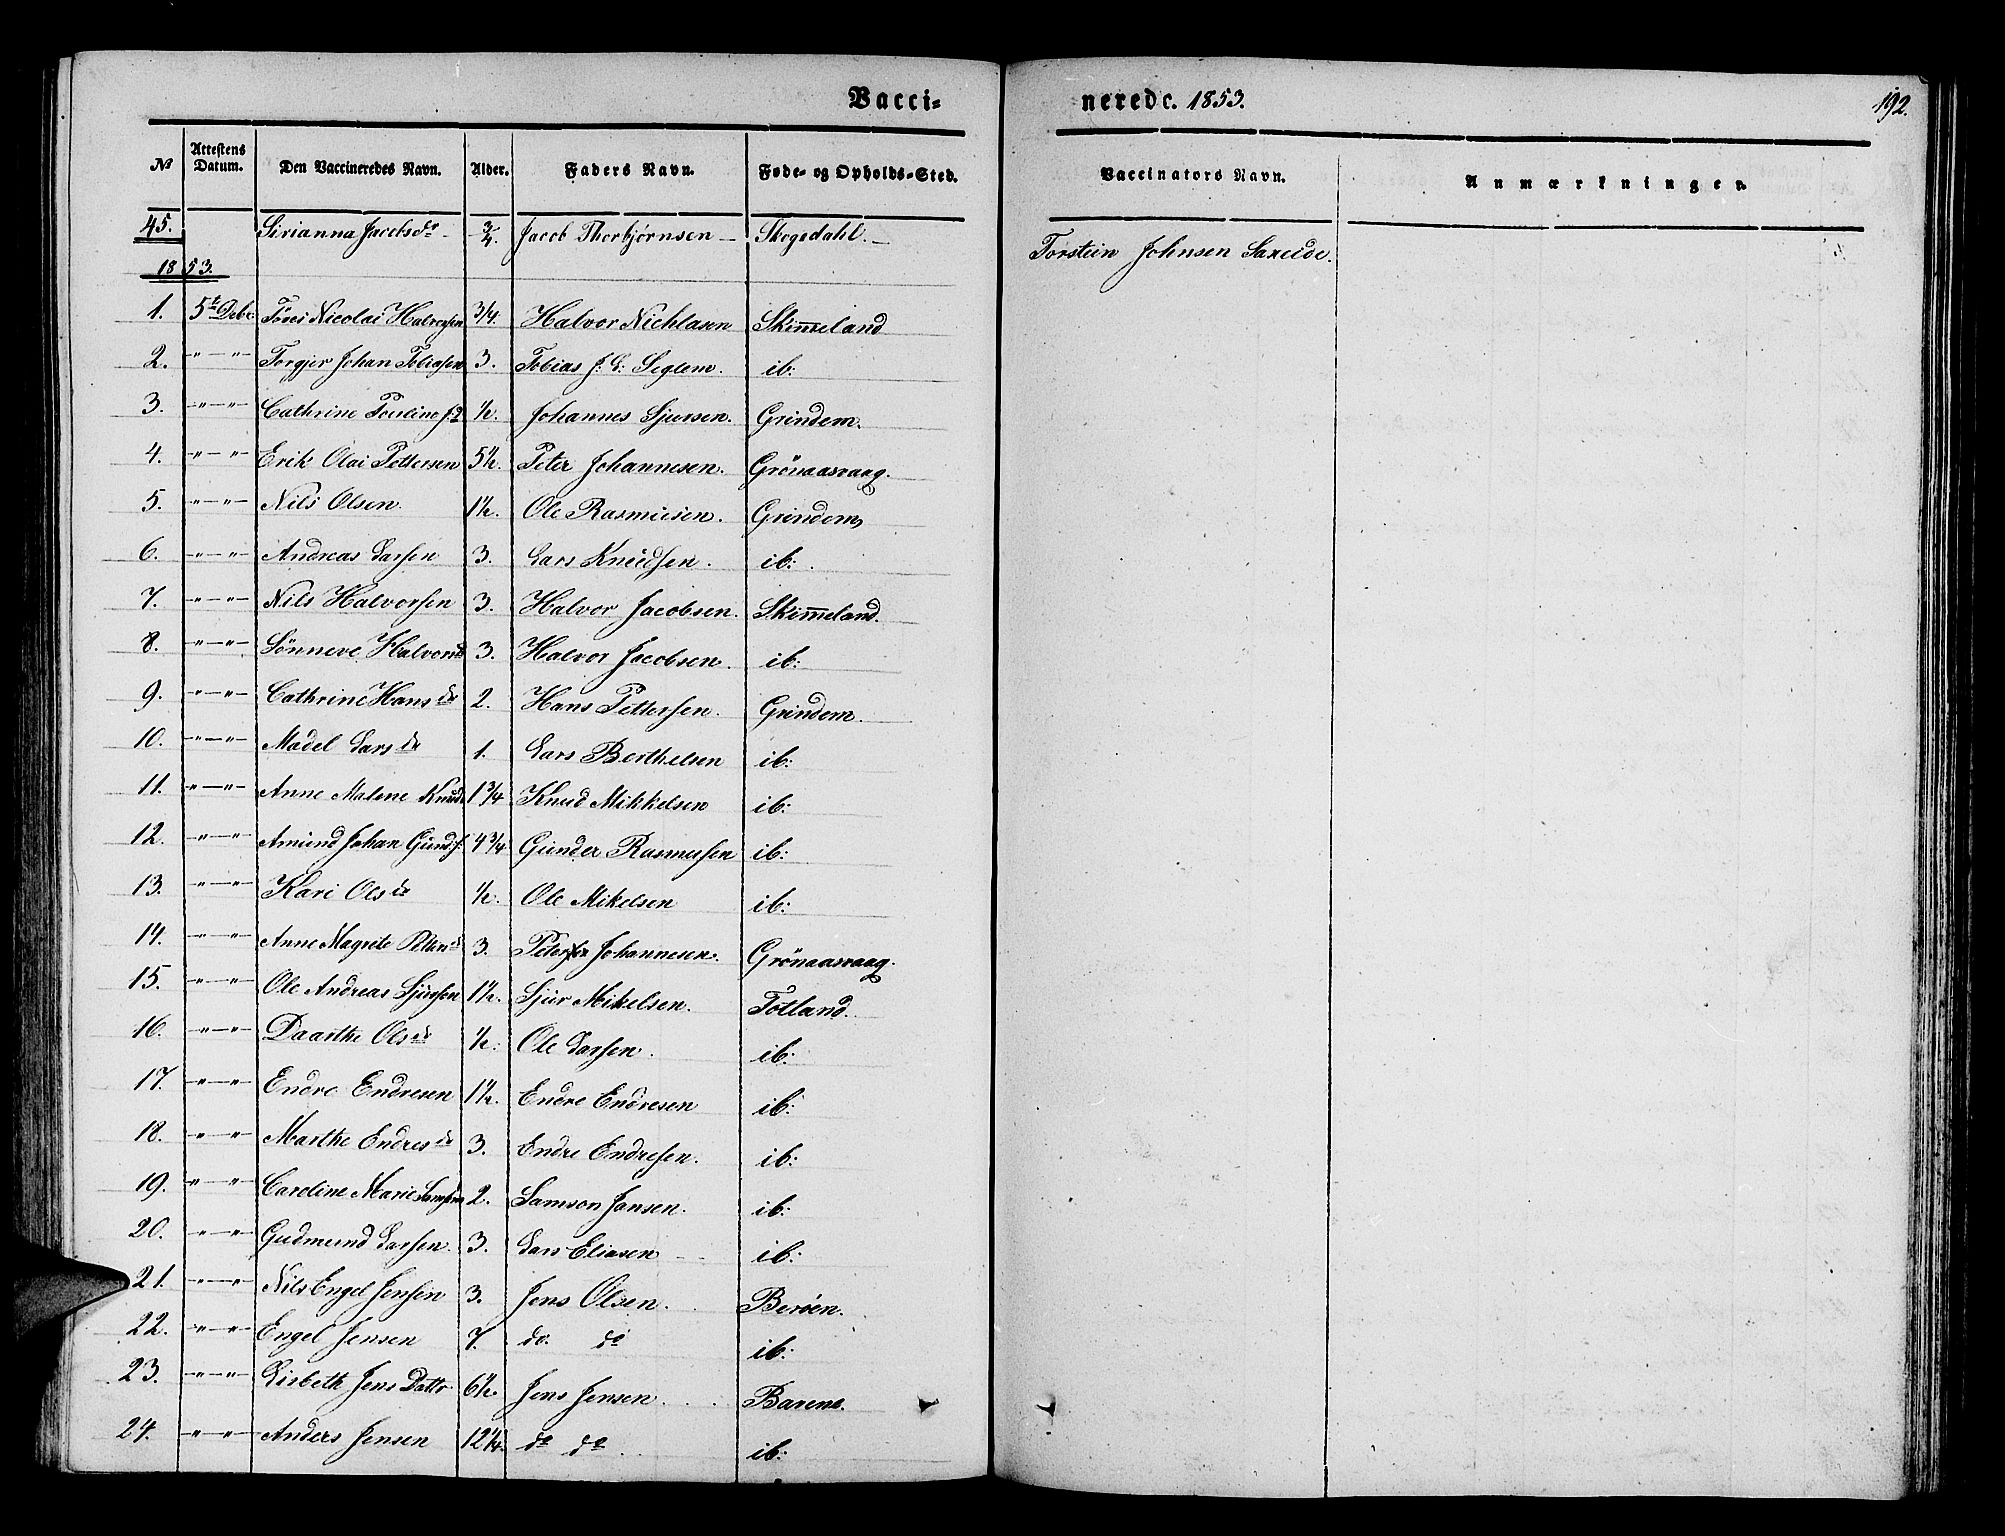 Vacci-
nerede. 1853.
192.
№ Attestens Datum. Den Vaccineredes Navn. Alder. Faders Navn. Føde- og Opholds-Sted.
Vaccinators Navn. Anmærkninger.
45. Sirianna Jacobsdr 3/4. Jacob Thorbjørnsen Skogsdahl.
Torstein Johnsen
1853.
1. 5te Debr Nicolai Halvorsen 3/4. Halvor Nichlasen Skim̅eland
2. " " Torgjer Johan Tobiasen 3. Tobias J. S: Seglem. ib:
3. " " Cathrine 1/2. Johannes Sjursen. Grindem.
4. " " Erik Olai Pettersen 5 1/2. Peter Johannesen. Grönaasvaag.
5. " " Nils Olsen. 1 1/2. Ole Rasmusen. Grindem
6. " " Andreas Larsen 3. Lars Knudsen. ib:
7. " " Nils Halvorsen 3. Halvor Jacobsen. Skim̅eland.
8. " " Sönneve Halvorsd 3. Halvor Jacobsen. ib:
9. " " Cathrine Hansdr 2. Hans Pettersen. Grindem.
10. " " Madel Larsdr 1. Lars Berthelsen ib:
11. " " Anne Malene Knuds 1 3/4 Knud Mikkelsen ib:
12. " " Amund Johan Gunds. 4 3/4 Gunder Rasmusen ib:
13. " " Kari Olsdr 1/2. Ole Mikelsen ib:
14. " " Anne Magrete Petersd 3. Peter Johannesen. Grönaasvaag.
15. " " Ole Andreas Sjursen 1 1/2. Sjur Mikelsen. Totland.
16. " " Daarthe Olsdr 1/2. Ole Larsen. ib:
17. " " Endre Endresen 1 1/2. Endre Endresen ib:
18. " " Marthe Endresdr 3. Endre Endresen. ib:
19. " " Caroline Marie Samsons 2. Samson Jansen. ib:
20. " " Gudmund Larsen. 3. Lars Eliasen ib:
21. " " Nils Engel Jensen 3. Jens Olsen. Beröen.
22. " " Engel Jensen 7. do. do ib:
23. " " Lisbeth Jens Dattr 6 1/2. Jens Jensen. Barene.
24. " " Anders Jensen 12 1/4. do do ib: